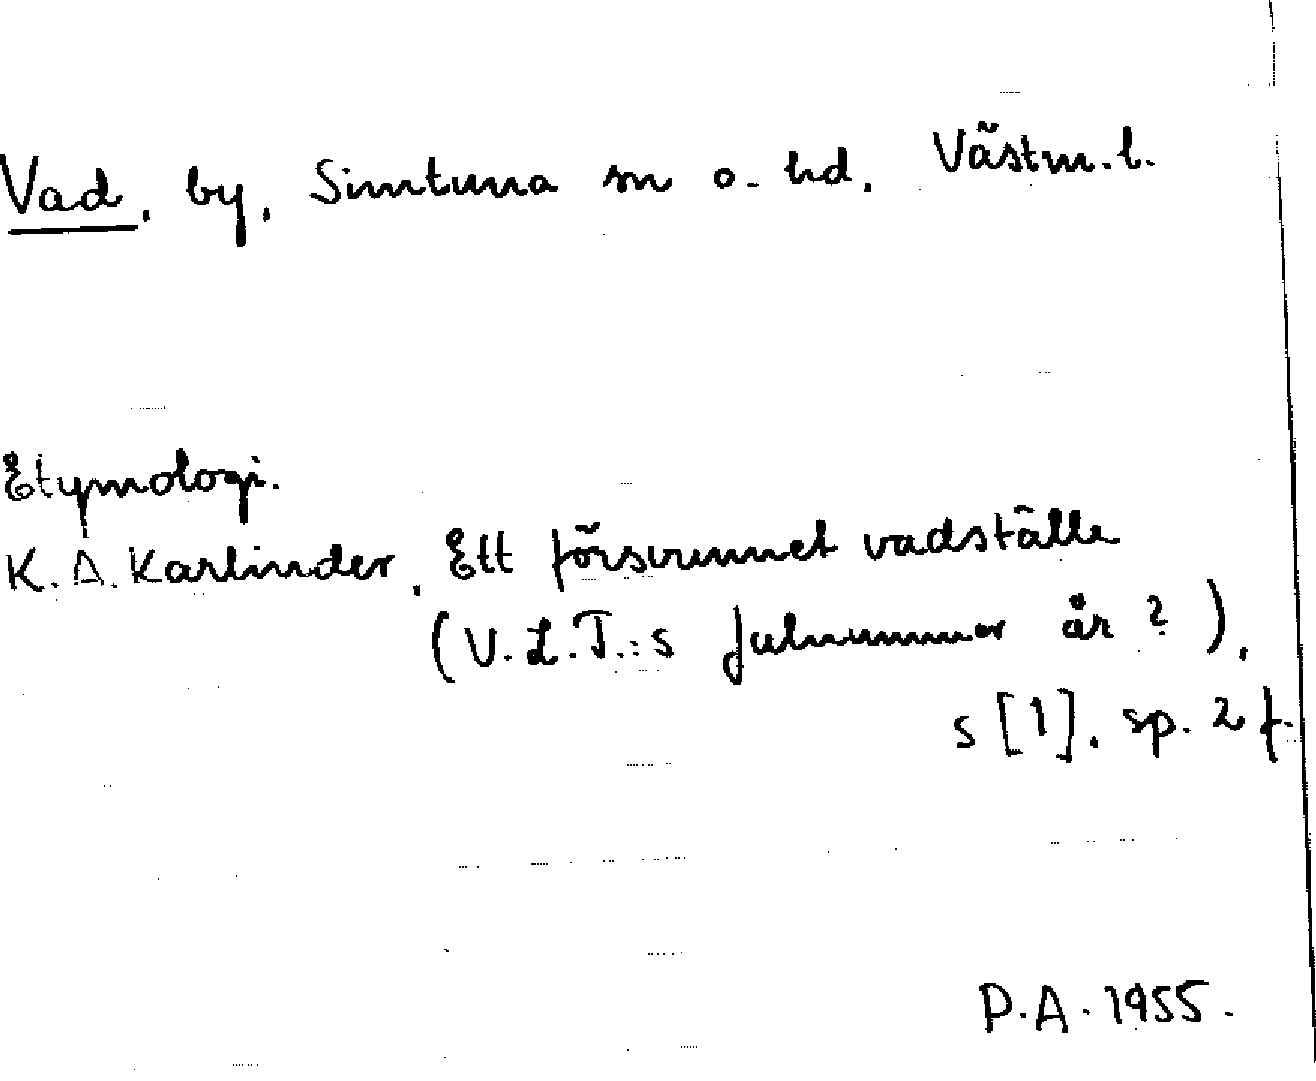 Vad, by, Simtuna sn o. hd. Västm. l.
Etymologi.
K. A. Karlinder, Ett försvunnet vadställe
(V. L. T.:s julnummer år ? ),
s [1], sp. 2 f.
P. A. 1955.